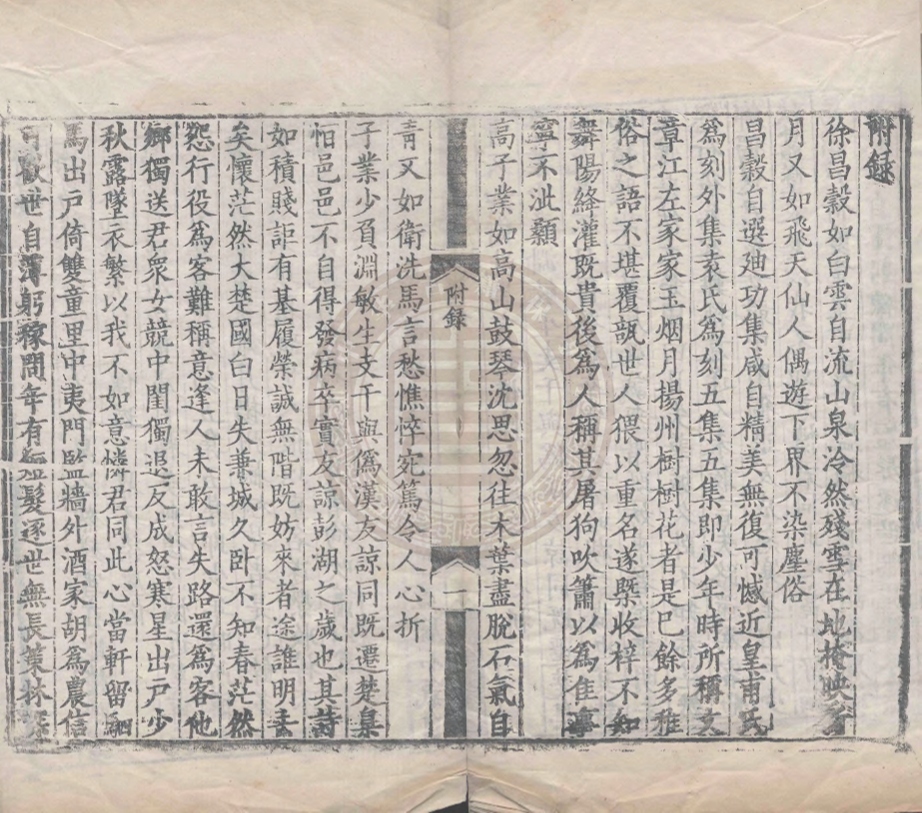 附錄
徐昌穀如白雲自流山泉泠然殘雪在地掩映新
月又如飛天仙人偶遊下界不染塵俗
昌穀自選廸功集咸自精美無復可憾近皇甫氏
爲刻外集袁氏爲刻五集五集即少年時所稱文
章江左家家玉烟月揚州樹樹花者是巳餘多稚
俗之語不堪覆瓿世人猥以重名遂槩收梓不知
舞陽絳灌旣貴後爲人稱其屠狗吹簫以爲佳事
寧不泚顙
高子業如高山鼓琴沈思忽往木葉盡脫石氣自
附錄
一
靑又如衛洗馬言愁憔悴宛篤令人心折
子業少負淵敏生支干與僞漢友諒同旣遷楚臬
怕邑邑不自得發病卒實友諒彭湖之歲也其詩
如積賤詎有基履榮誠無階旣妨來者途誰明去
矣懷茫然大楚國白日失兼城久卧不知春茫然
怨行役爲客難稱意逢人未敢言失路還爲客他
鄉獨送君衆女競中閨獨退反成怒寒星出戶少
秋露墜衣繁以我不如意憐君同此心當軒留駟
馬出戶倚雙童里中夷門監牆外酒家胡爲農信
可歡世自薄躬稼問年有短髮逐世無長策林深